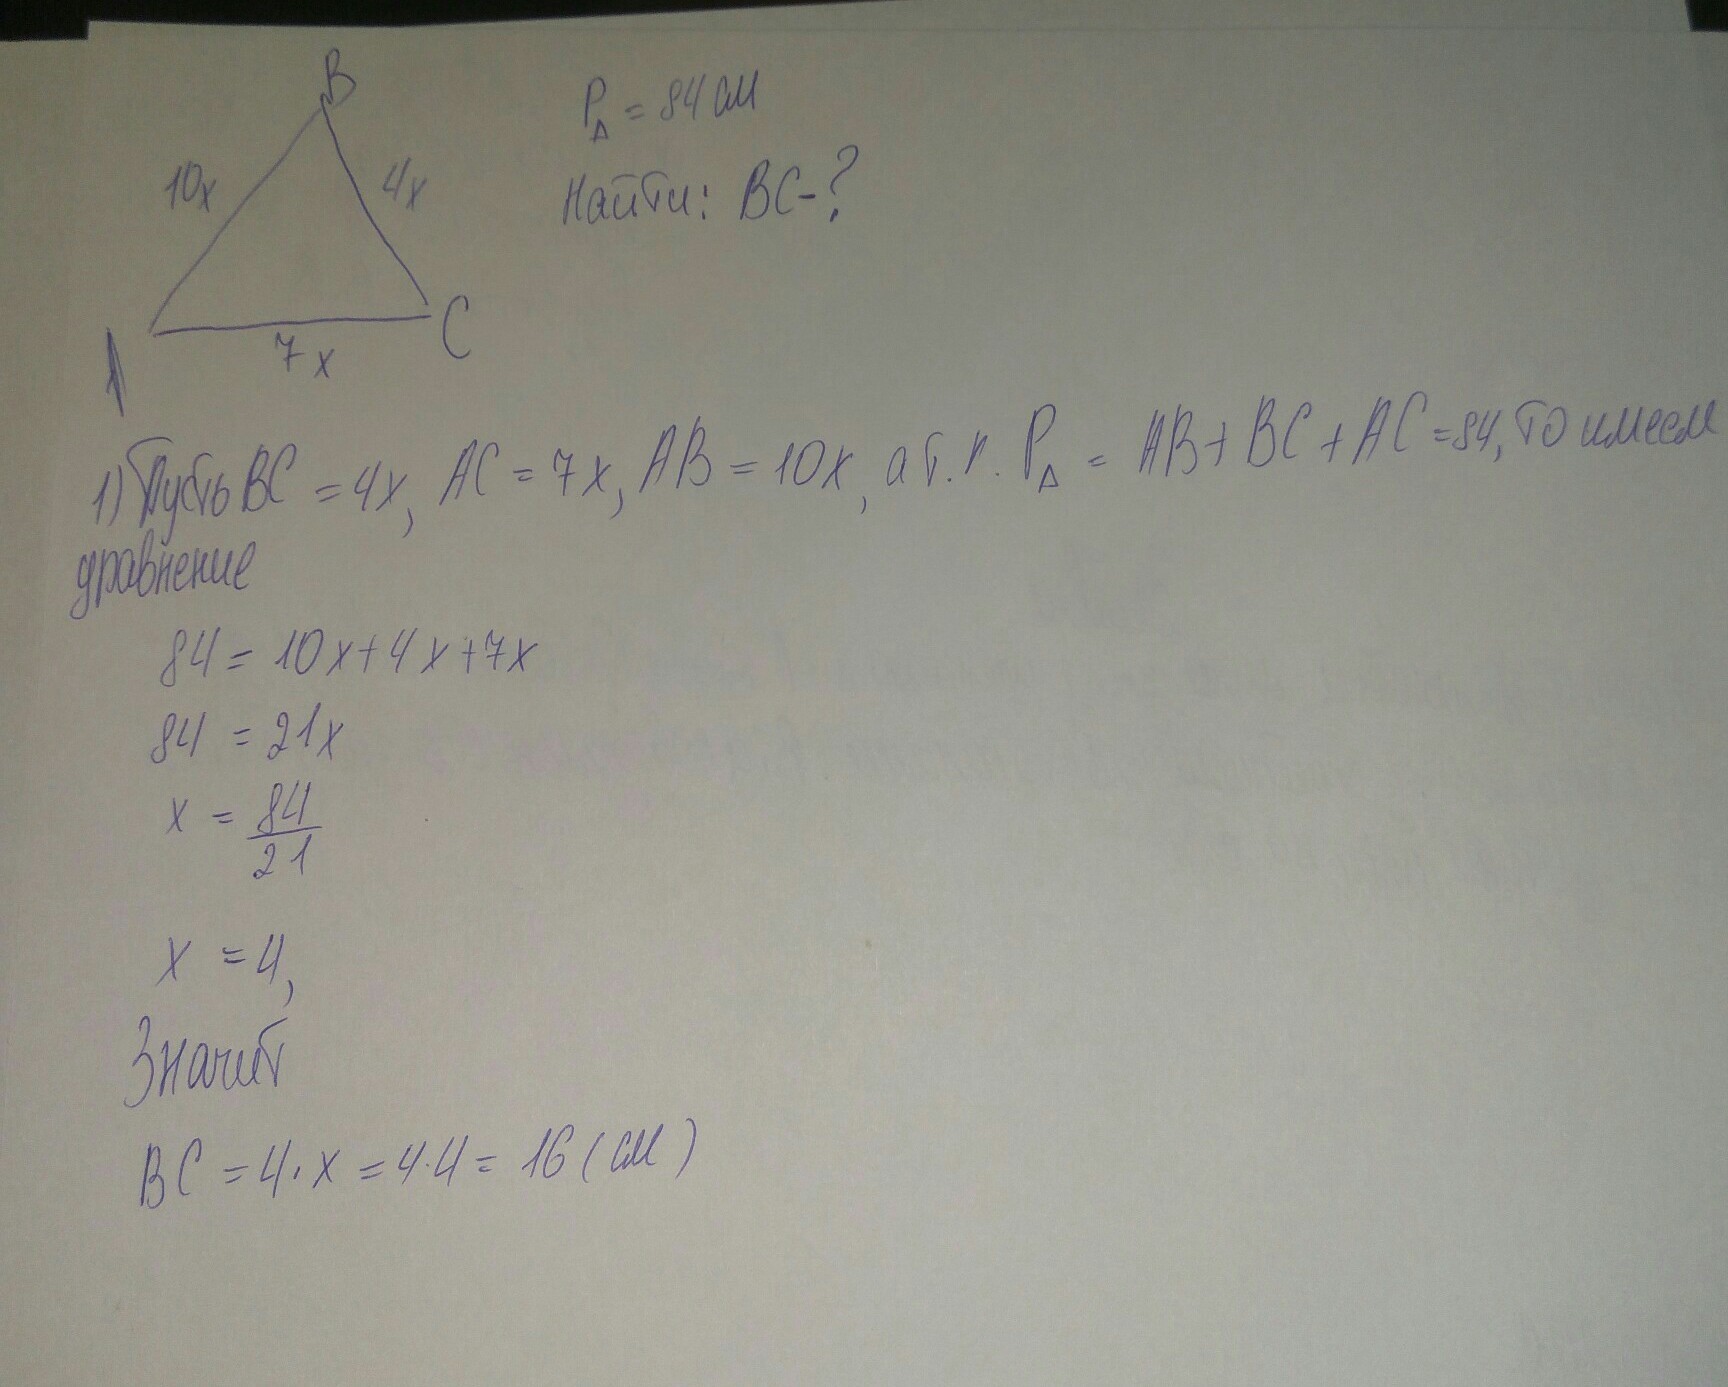 B
P△ = 84 см
10x
4x
Найти: BC-?
A
7x
C
1) Пусть BC = 4x, AC = 7x, AB = 10x, а т.к. P△ = AB + BC + AC = 84, то имеем
уравнение
84 = 10x + 4x + 7x
84 = 21x
x = 84/21
x = 4,
Значит
BC = 4·x = 4·4 = 16 (см)